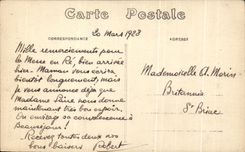 Carte Postale
CORRESPONDANCE
ADRESSE
20 Mars 1923
Mille remerciements pour
la Messe en Ré, bien arrivée
hier. Maman vous écrira
bientôt longuement, mais
je vous annonce déjà que
Madame nous donne
maintenant très bon espoir.
On envisage sa convalescence à
Beaumejour!
Recevez toutes deux nos
bons baisers Robert
Mademoiselle A. Morin
Britannia
St Briac